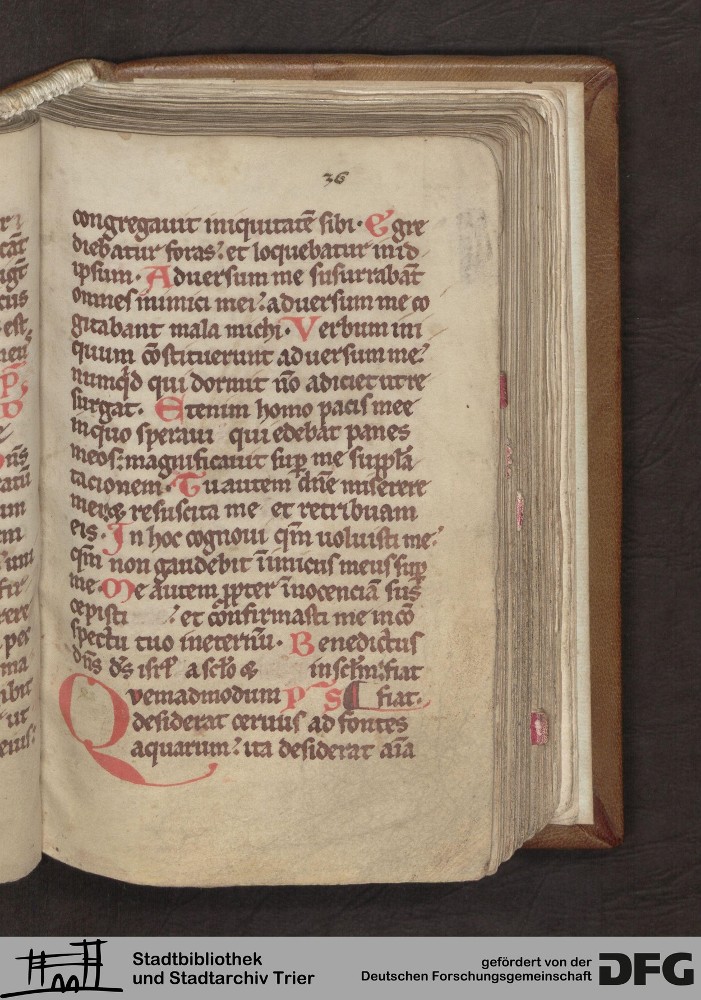 36
congregauit iniquitatē sibi. Egre
diebatur foras: et loquebatur in id
ipsum. Aduersum me susurrabāt
omnes inimici mei: aduersum me co
gitabant mala michi. Verbum ini
quum cōstituerunt aduersum me:
numqd qui dormit nō adiciet ut re
surgat. Etenim homo pacis mee
in quo speraui qui edebat panes
meos: magnificauit sup me supplā
tacionem. Tu autem dne miserere
mei & resuscita me et retribuam
eis. In hoc cognoui qm uoluisti me:
qm non gaudebit inimicus meus sup
me. Me autem ppter inocenciā sus
cepisti : et cōnfirmasti me in cō
spectu tuo in eternū. Benedictus
dns ds isrl a sclo & in sclm: fiat
Quemadmodum ps fiat.
desiderat ceruus ad fontes
aquarum: ita desiderat aīa
Stadtbibliothek
und Stadtarchiv Trier
gefördert von der
Deutschen Forschungsgemeinschaft
DFG